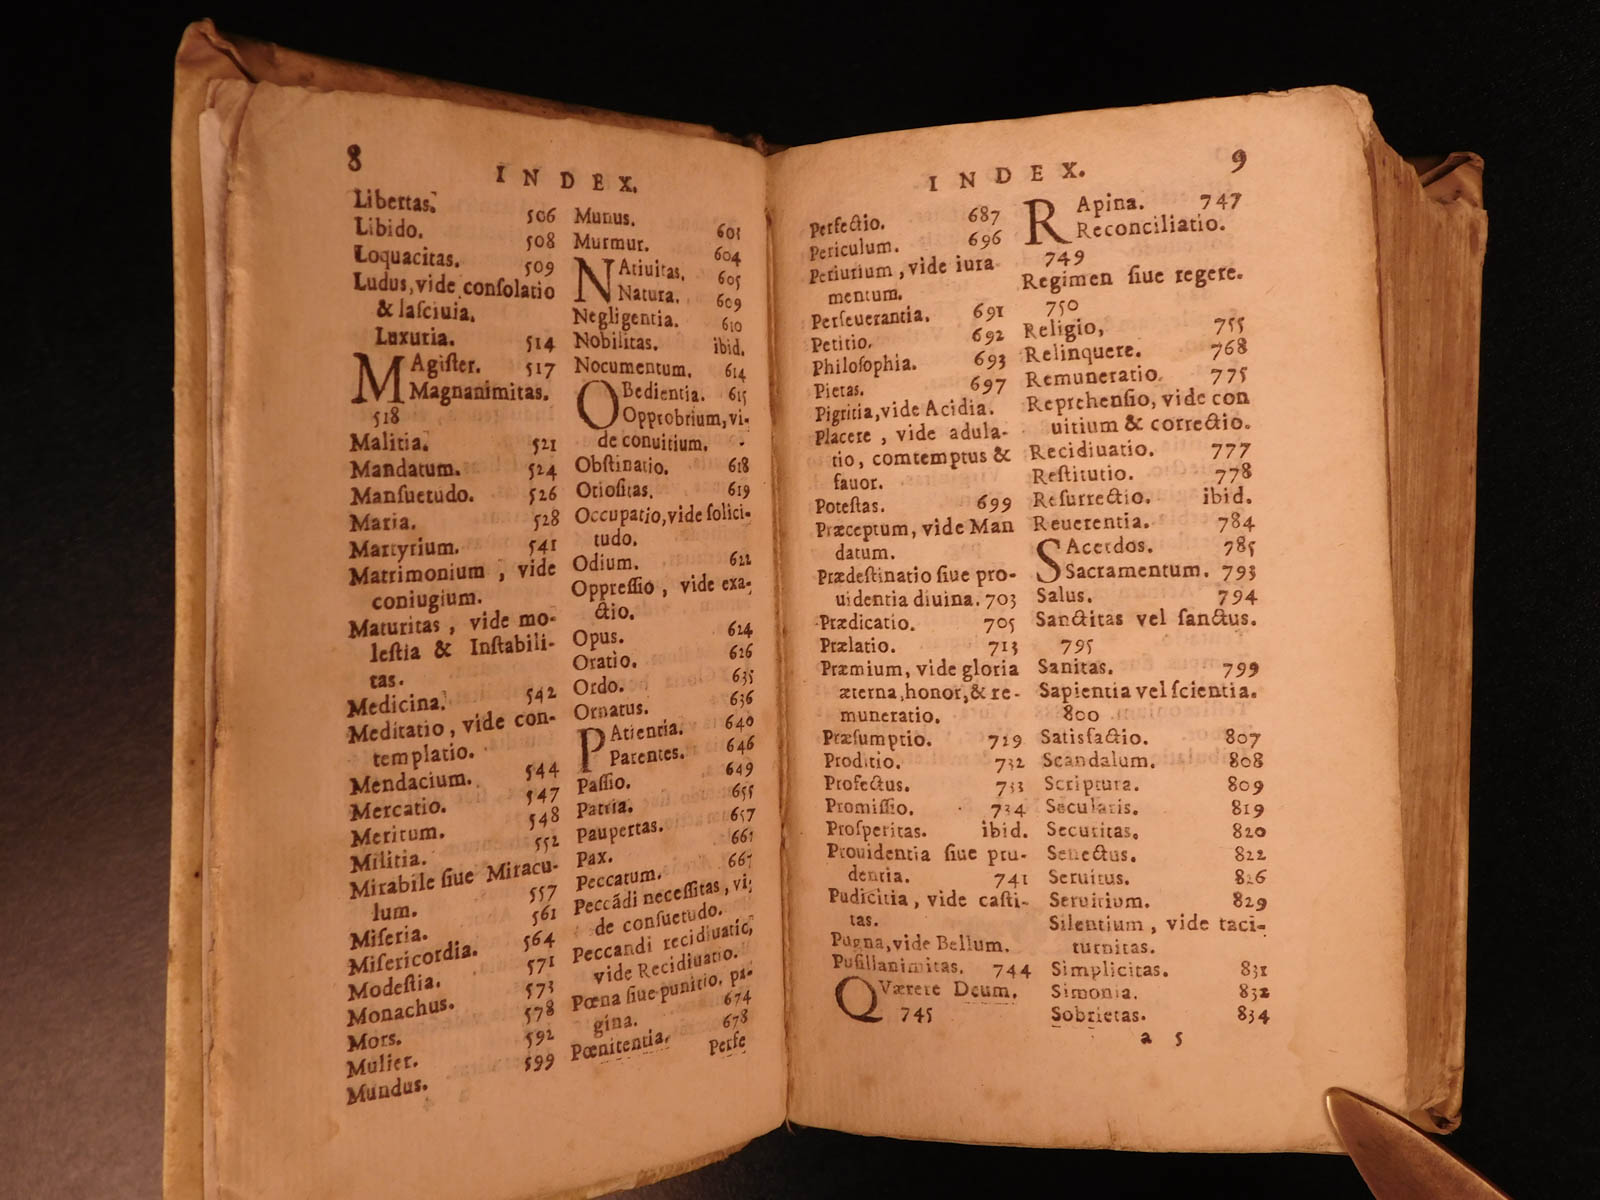 8
INDEX.
Libertas. 506
Libido. 508
Loquacitas. 509
Ludus, vide consolatio
& lasciuia.
Luxuria. 514
MAgister. 517
Magnanimitas.
518
Malitia. 521
Mandatum. 524
Mansuetudo. 526
Maria. 528
Martyrium. 541
Matrimonium, vide
coniugium.
Maturitas, vide mo-
lestia & Instabili-
tas.
Medicina. 542
Meditatio, vide con-
templatio.
Mendacium. 544
Mercatio. 547
Meritum. 548
Militia. 552
Mirabile siue Miracu-
lum. 557
Miseria. 561
Misericordia. 564
Modestia. 571
Monachus. 573
Mors. 578
Mulier. 592
Mundus. 599
Munus. 601
Murmur. 604
NAtiuitas. 605
Natura. 609
Negligentia. 610
Nobilitas. ibid.
Nocumentum. 614
OBedientia. 615
Opprobrium, vi-
de conuitium.
Obstinatio. 618
Otiositas. 619
Occupatio, vide solici-
tudo.
Odium. 622
Oppressio, vide exa-
ctio.
Opus. 624
Oratio. 626
Ordo. 635
Ornatus. 636
PAtientia. 640
Parentes. 646
Passio. 649
Patria. 655
Paupertas. 657
Pax. 661
Peccatum. 667
Peccādi necessitas, vi-
de consuetudo.
Peccandi recidiuatio,
vide Recidiuatio.
Pœna siue punitio, pa-
gina. 674
Pœnitentia. 678
Perfe
INDEX. 9
Perfectio. 687
Periculum. 696
Periurium, vide iura
mentum.
Perseuerantia. 691
Petitio. 692
Philosophia. 693
Pietas. 697
Pigritia, vide Acidia.
Placere, vide adula-
tio, comtemptus &
fauor.
Potestas. 699
Præceptum, vide Man
datum.
Prædestinatio siue pro-
uidentia diuina. 703
Prædicatio. 705
Prælatio. 713
Præmium, vide gloria
æterna, honor, & re-
muneratio.
Præsumptio. 729
Proditio. 732
Profectus. 733
Promissio. 734
Prosperitas. ibid.
Prouidentia siue pru-
dentia. 741
Pudicitia, vide casti-
tas.
Pugna, vide Bellum.
Pusillanimitas. 744
QVærere Deum.
745
RApina. 747
Reconciliatio.
749
Regimen siue regere.
750
Religio, 755
Relinquere. 768
Remuneratio. 775
Reprehensio, vide con
uitium & correctio.
Recidiuatio. 777
Restitutio. 778
Resurrectio. ibid.
Reuerentia. 784
SAcerdos. 785
Sacramentum. 793
Salus. 794
Sanctitas vel sanctus.
795
Sanitas. 799
Sapientia vel scientia.
800
Satisfactio. 807
Scandalum. 808
Scriptura. 809
Secularis. 819
Securitas. 820
Senectus. 822
Seruitus. 826
Seruitium. 829
Silentium, vide taci-
turnitas.
Simplicitas. 831
Simonia. 832
Sobrietas. 834
a 5